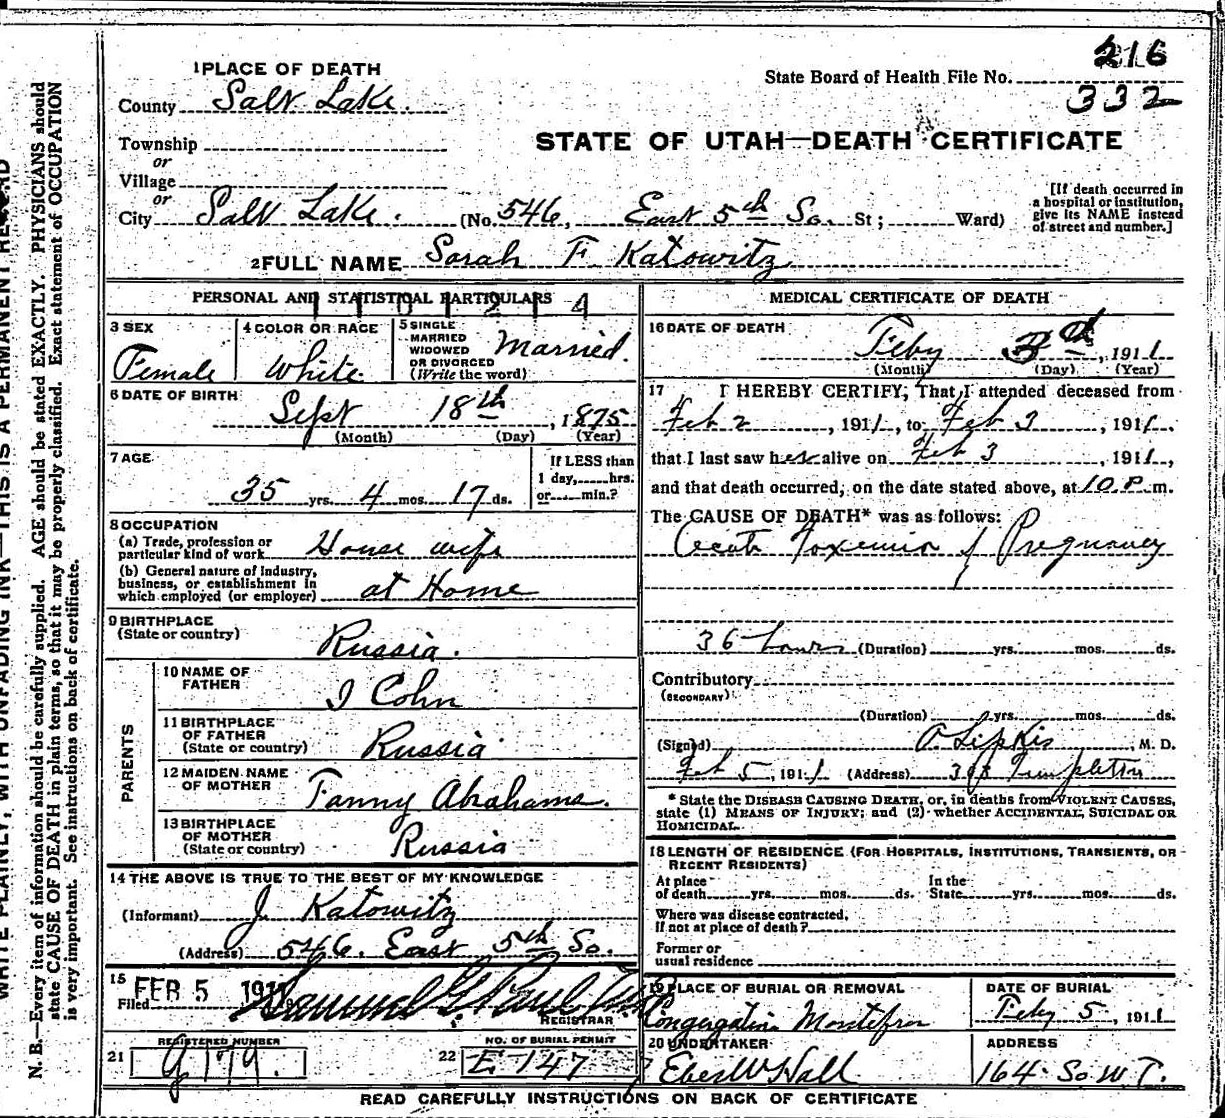 216
State Board of Health File No.
332
1 PLACE OF DEATH
County Salt Lake.
STATE OF UTAH—DEATH CERTIFICATE
Township
or
Village
or
City Salt Lake. (No. 546, East 5th So. St; Ward)
[If death occurred in
a hospital or institution,
give its NAME instead
of street and number.]
2 FULL NAME Sarah F. Katowitz
PERSONAL AND STATISTICAL PARTICULARS
3 SEX Female
4 COLOR OR RACE White
5 SINGLE
MARRIED
WIDOWED
OR DIVORCED
(Write the word) Married.
6 DATE OF BIRTH Sept 18th, 1875
(Month) (Day) (Year)
7 AGE
35 yrs. 4 mos. 17 ds.
If LESS than
1 day, hrs.
or min.?
8 OCCUPATION
(a) Trade, profession or
particular kind of work House wife
(b) General nature of industry,
business, or establishment in
which employed (or employer) at Home
9 BIRTHPLACE
(State or country) Russia.
PARENTS
10 NAME OF
FATHER I Cohn
11 BIRTHPLACE
OF FATHER
(State or country) Russia
12 MAIDEN NAME
OF MOTHER Fanny Abrahams.
13 BIRTHPLACE
OF MOTHER
(State or country) Russia
14 THE ABOVE IS TRUE TO THE BEST OF MY KNOWLEDGE
(Informant) J. Katowitz
(Address) 546. East 5th So.
15
Filed FEB 5 1911 Samuel G. Paul
REGISTRAR
21 REGISTERED NUMBER
g 179.
22 NO. OF BURIAL PERMIT
E 147
MEDICAL CERTIFICATE OF DEATH
16 DATE OF DEATH
Feby 3d, 1911
(Month) (Day) (Year)
17 I HEREBY CERTIFY, That I attended deceased from
Feb 2, 1911, to Feb 3, 1911,
that I last saw her alive on Feb 3, 1911,
and that death occurred, on the date stated above, at 10 P. m.
The CAUSE OF DEATH* was as follows:
Acute Toxemia of Pregnancy
36 hours (Duration) yrs. mos. ds.
Contributory
(SECONDARY)
(Duration) yrs. mos. ds.
(Signed) O. Lipkis, M. D.
Feb 5, 1911 (Address) 308 Templeton
* State the DISEASE CAUSING DEATH, or, in deaths from VIOLENT CAUSES,
state (1) MEANS OF INJURY; and (2) whether ACCIDENTAL, SUICIDAL OR
HOMICIDAL.
18 LENGTH OF RESIDENCE (FOR HOSPITALS, INSTITUTIONS, TRANSIENTS, OR
RECENT RESIDENTS)
At place
of death yrs. mos. ds.
In the
State yrs. mos. ds.
Where was disease contracted,
if not at place of death?
Former or
usual residence
19 PLACE OF BURIAL OR REMOVAL
Congregation Montefiore
DATE OF BURIAL
Feby 5, 1911
20 UNDERTAKER
Eber W Hall
ADDRESS
164 So. W. T.
READ CAREFULLY INSTRUCTIONS ON BACK OF CERTIFICATE
WRITE PLAINLY, WITH UNFADING INK—THIS IS A PERMANENT RECORD
N. B.—Every item of information should be carefully supplied. AGE should be stated EXACTLY. PHYSICIANS should
state CAUSE OF DEATH in plain terms, so that it may be properly classified. Exact statement of OCCUPATION
is very important. See instructions on back of certificate.